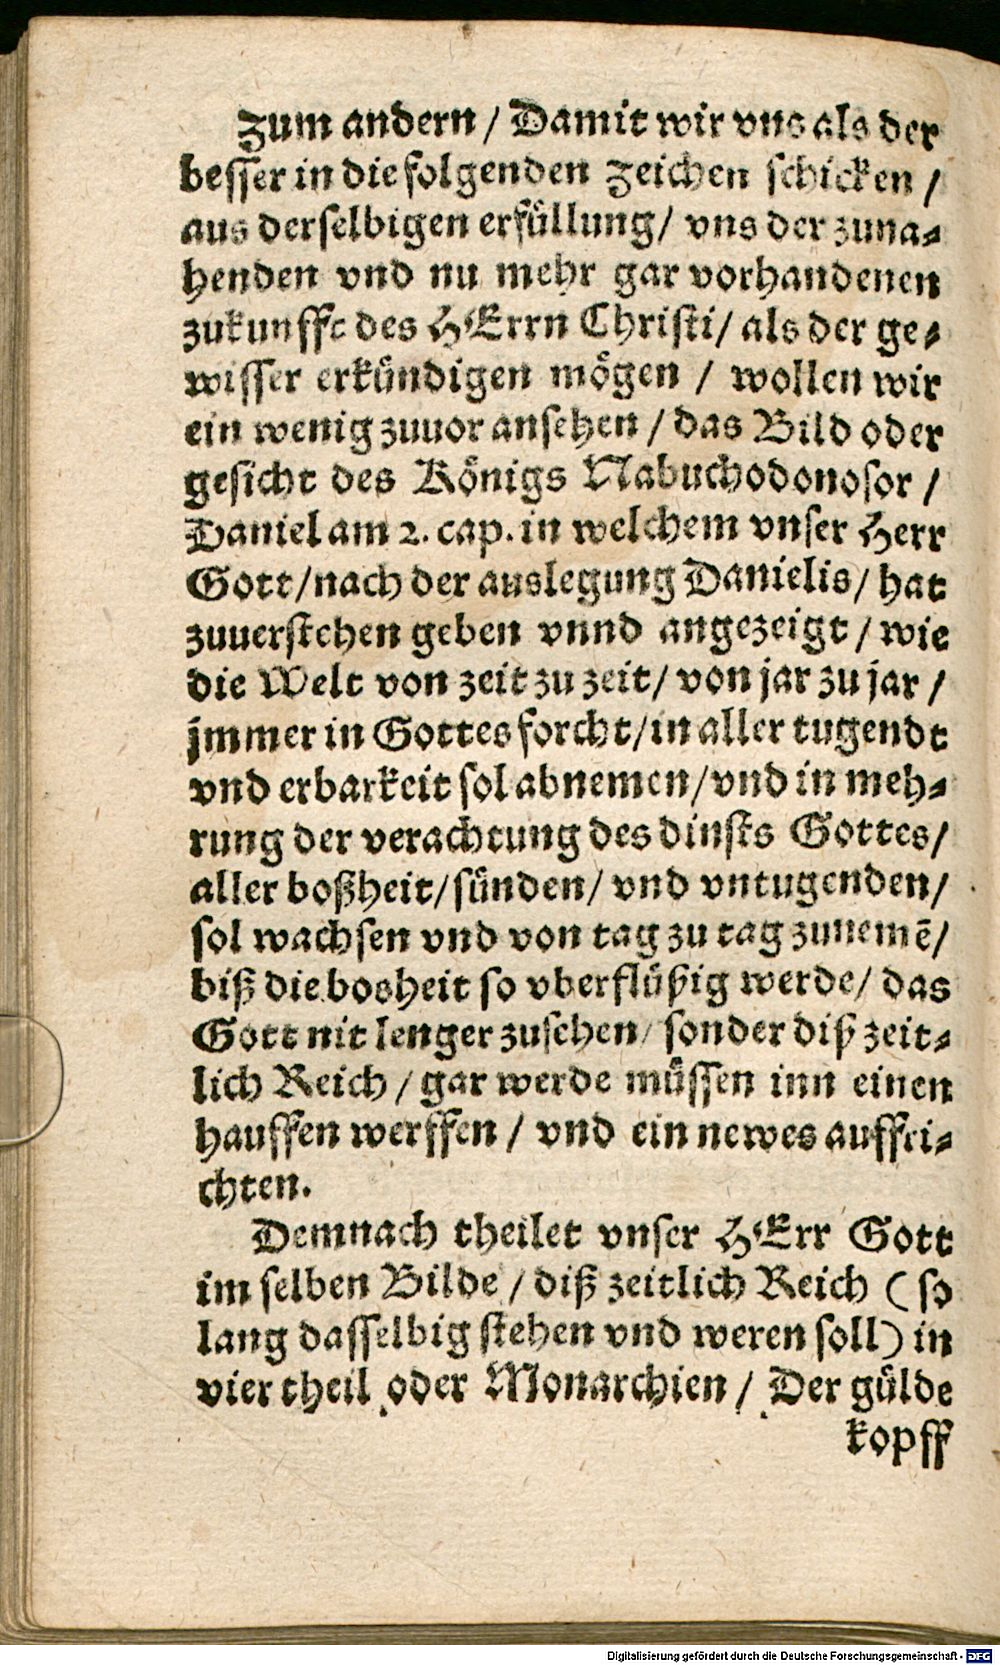 Zum andern / Damit wir vns als der
besser in die folgenden zeichen schicken /
aus derselbigen erfüllung / vns der zuna-
henden vnd nu mehr gar vorhandenen
zukunfft des HErrn Christi / als der ge-
wisser erkündigen mögen / wollen wir
ein wenig zuuor ansehen / das Bild oder
gesicht des Königs Nabuchodonosor /
Daniel am 2. cap. in welchem vnser Herr
Gott / nach der auslegung Danielis / hat
zuuerstehen geben vnnd angezeigt / wie
die Welt von zeit zu zeit / von jar zu jar /
jmmer in Gottes forcht / in aller tugendt
vnd erbarkeit sol abnemen / vnd in meh-
rung der verachtung des dinsts Gottes /
aller boßheit / sünden / vnd vntugenden /
sol wachsen vnd von tag zu tag zunemē /
biß die bosheit so vberflüßig werde / das
Gott nit lenger zusehen / sonder diß zeit-
lich Reich / gar werde müssen inn einen
hauffen werffen / vnd ein newes auffri-
chten.
Demnach theilet vnser HErr Gott
im selben Bilde / diß zeitlich Reich ( so
lang dasselbig stehen vnd weren soll) in
vier theil oder Monarchien / Der gülde
kopff
Digitalisierung gefördert durch die Deutsche Forschungsgemeinschaft - DFG